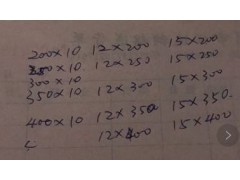 200×10 12×200 15×200
250×10 12×250 15×250
300×10
350×10 12×300 15×300
400×10 12×350 15×350.
12×400 15×400